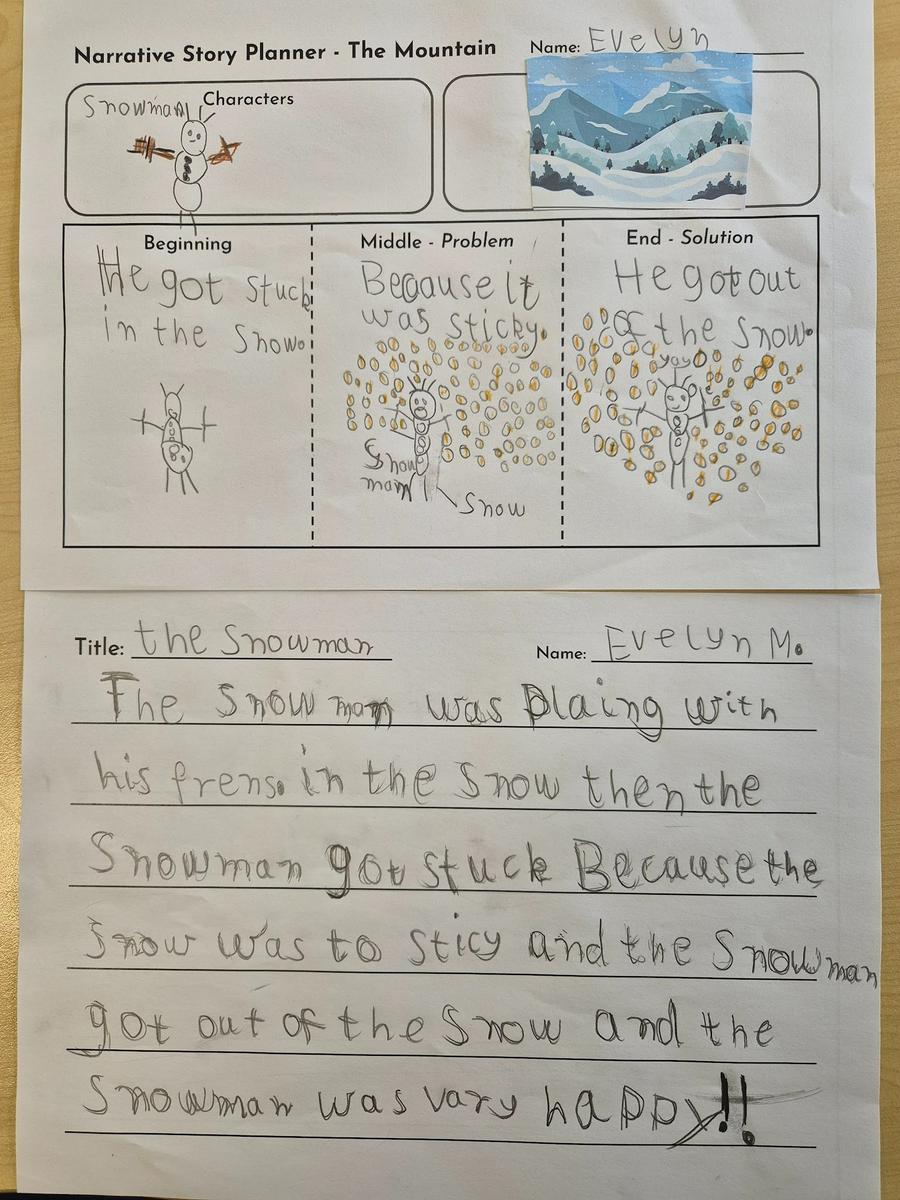 Narrative Story Planner - The Mountain
Name: Evelyn
Snowman
Characters
Beginning
He got stuck
in the snow.
Middle - Problem
Because it
was sticky.
Snow
man
Snow
End - Solution
He got out
of the snow.
yay
Title: the snowman
Name: Evelyn M.
The snow man was plaing with
his frens. in the snow then the
snowman got stuck Because the
snow was to sticy and the snowman
got out of the snow and the
snowman was vary happy!!